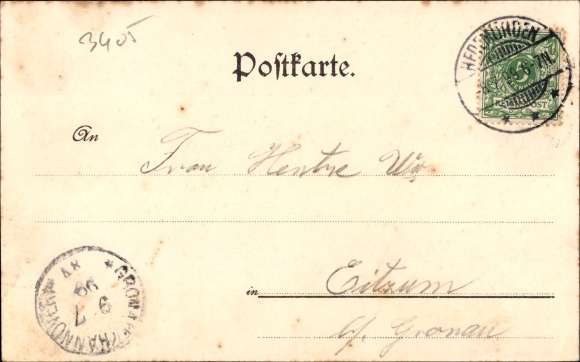 3405
Postkarte.
HEDEMÜNDEN
REICHSPOST
An
Frau
in Eitzum
b/ Gronau
GRONAU (HANNOVER)
9 7
99
8V